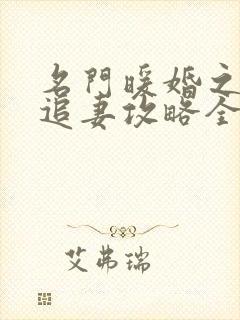 名門暖婚之
追妻攻略全
艾弗瑞